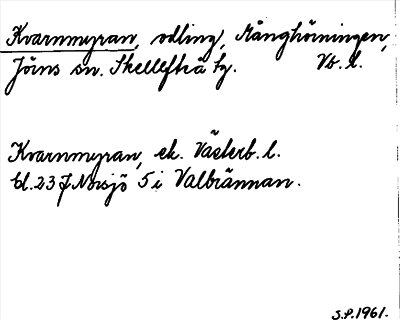 Kvarnmyran, odling, Månghörningen,
Jörns sn. Skellefteå tg. Vb. l.
Kvarnmyran, ek. Västerb. l.
Bl. 23 J Norsjö 5 i Valbrännan.
S.P. 1961.